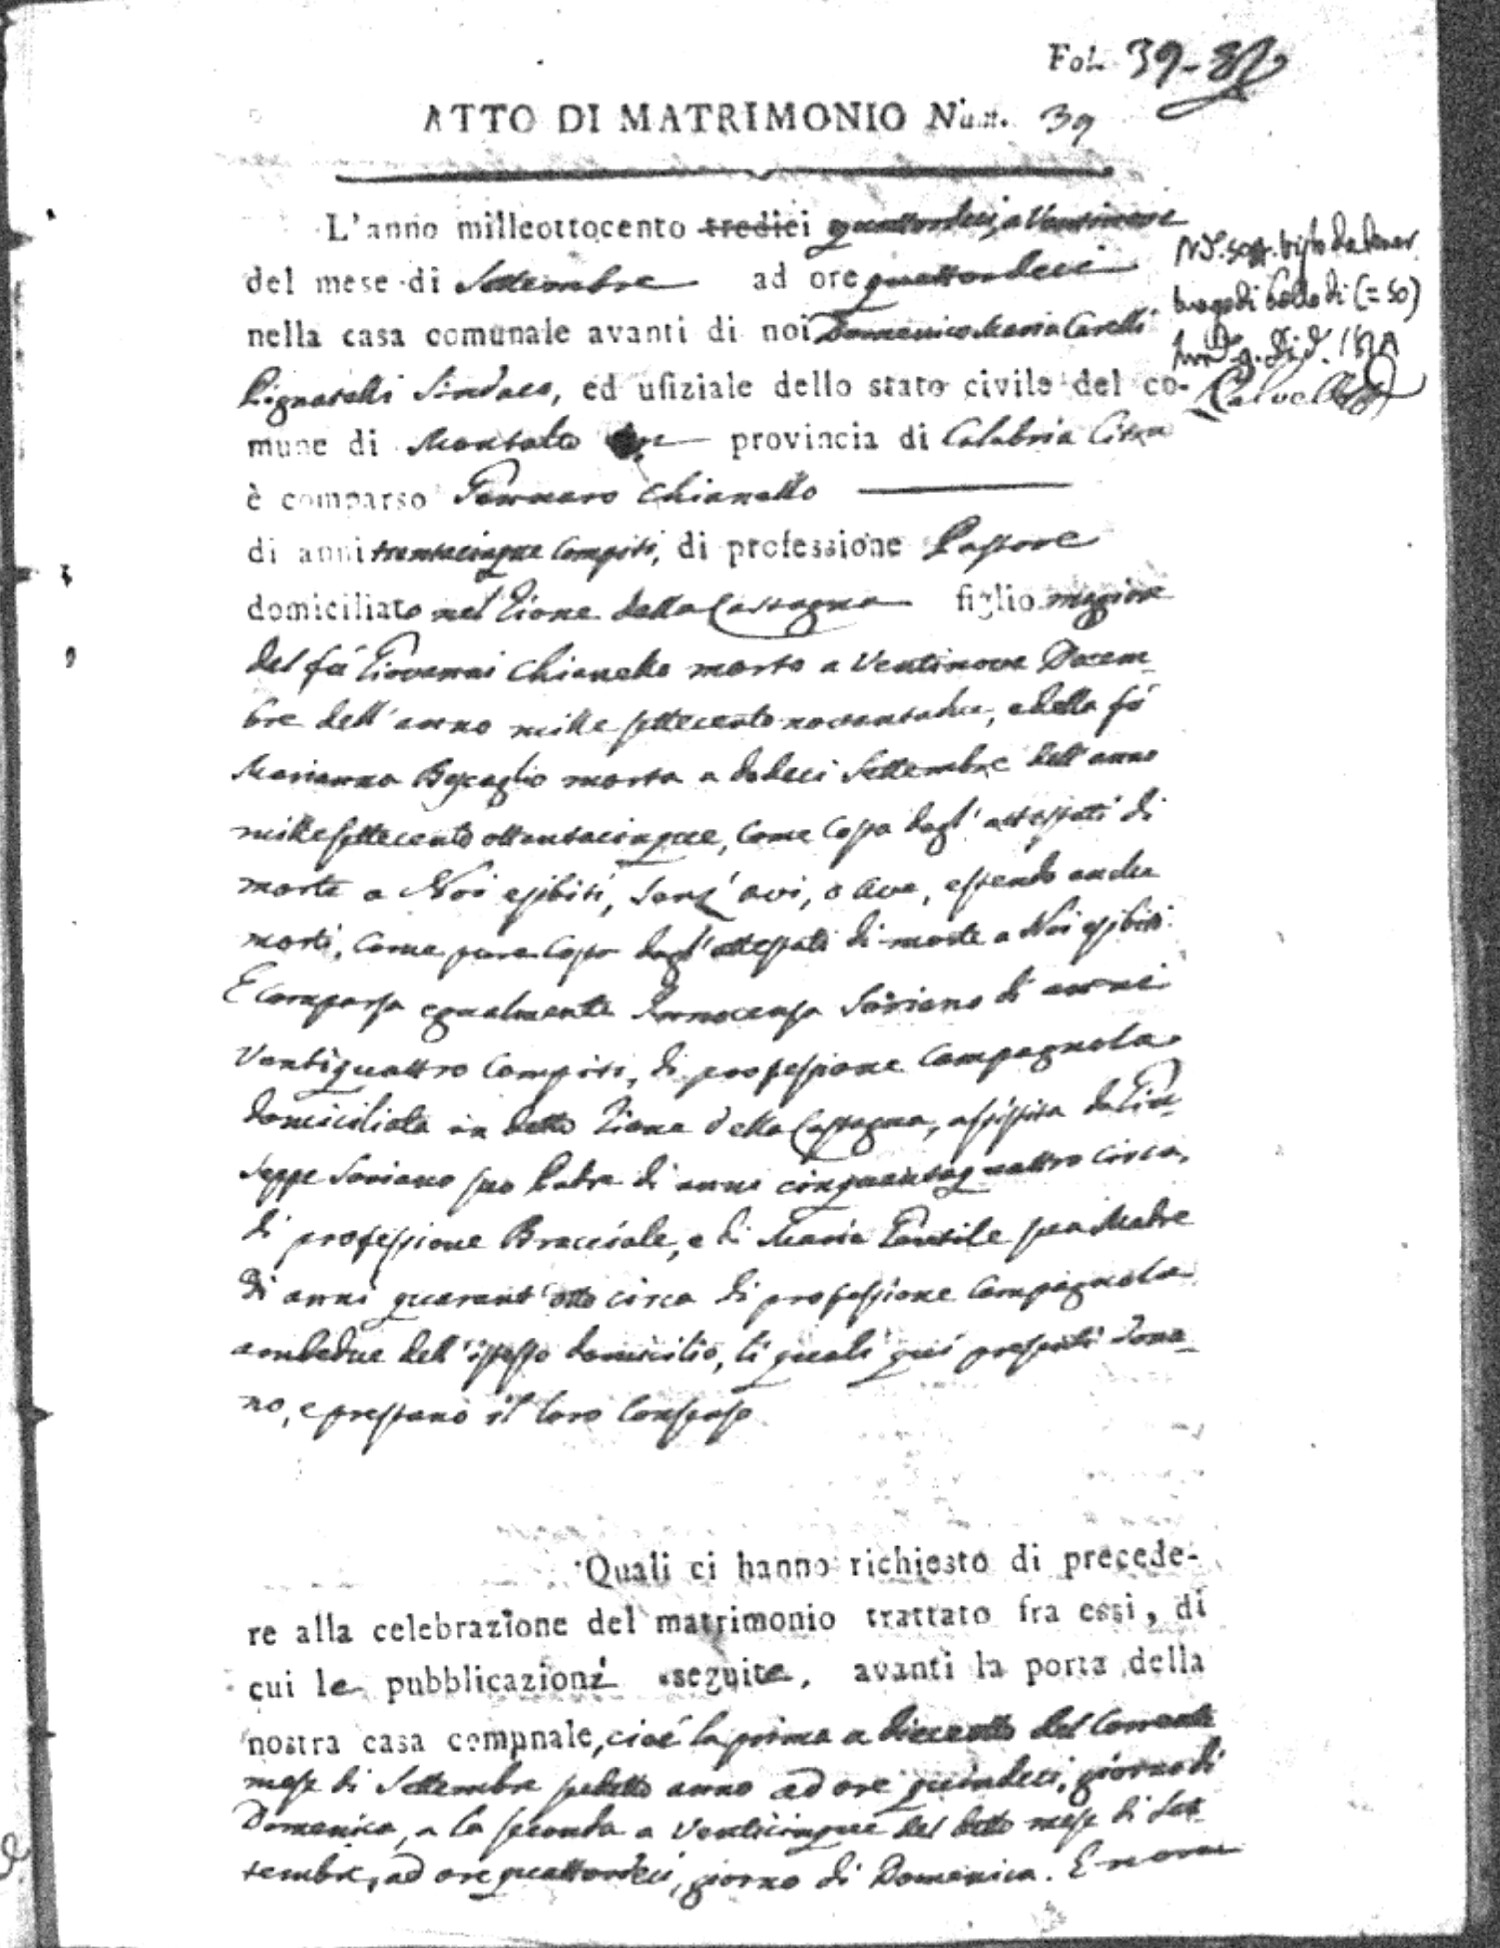 Fol. 39-
ATTO DI MATRIMONIO Num. 39
L'anno milleottocento tredici quattordeci, a Ventinove
del mese di Settembre ad ore quattordeci
nella casa comunale avanti di noi Domenico Maria Carelli
Pignatelli Sindaco, ed ufiziale dello stato civile del co-
mune di Montalto provincia di Calabria Citra
è comparso Gennaro Chianello
di anni trentacinque compiti, di professione Pastore
domiciliato nel Rione della Castagna figlio maggiore
del fù Giovanni Chianello morto a Ventinove Decem-
bre dell'anno mille settecento novantadue, e della fù
Marianna morta a dodeci Settembre dell'anno
mille settecento ottantacinque, come costa dagl'attestati di
morte a Noi esibiti, senz'avi, o ave, essendo anche
morti, come pure costa dagl'attestati di morte a Noi esibiti.
È comparsa egualmente Innocenza Soriano di anni
Ventiquattro compiti, di professione Campagnola
domiciliata in detto Rione della Castagna, assistita da Giu-
seppe Soriano suo Padre di anni cinquantaquattro circa,
di professione Bracciale, e di Maria Gentile sua Madre
di anni quarant'otto circa di professione Campagnola
ambedue dell'istesso domicilio, li quali quì presenti dona-
no, e prestano il loro consenso
Quali ci hanno richiesto di precede-
re alla celebrazione del matrimonio trattato fra essi, di
cui le pubblicazioni seguite, avanti la porta della
nostra casa comunale, cioè la prima a dieciotto del corrente
mese di Settembre sudetto anno ad ore quindeci, giorno di
Domenica, e la seconda a Venticinque del detto mese di Set-
tembre, ad ore quattordeci, giorno di Domenica. E non